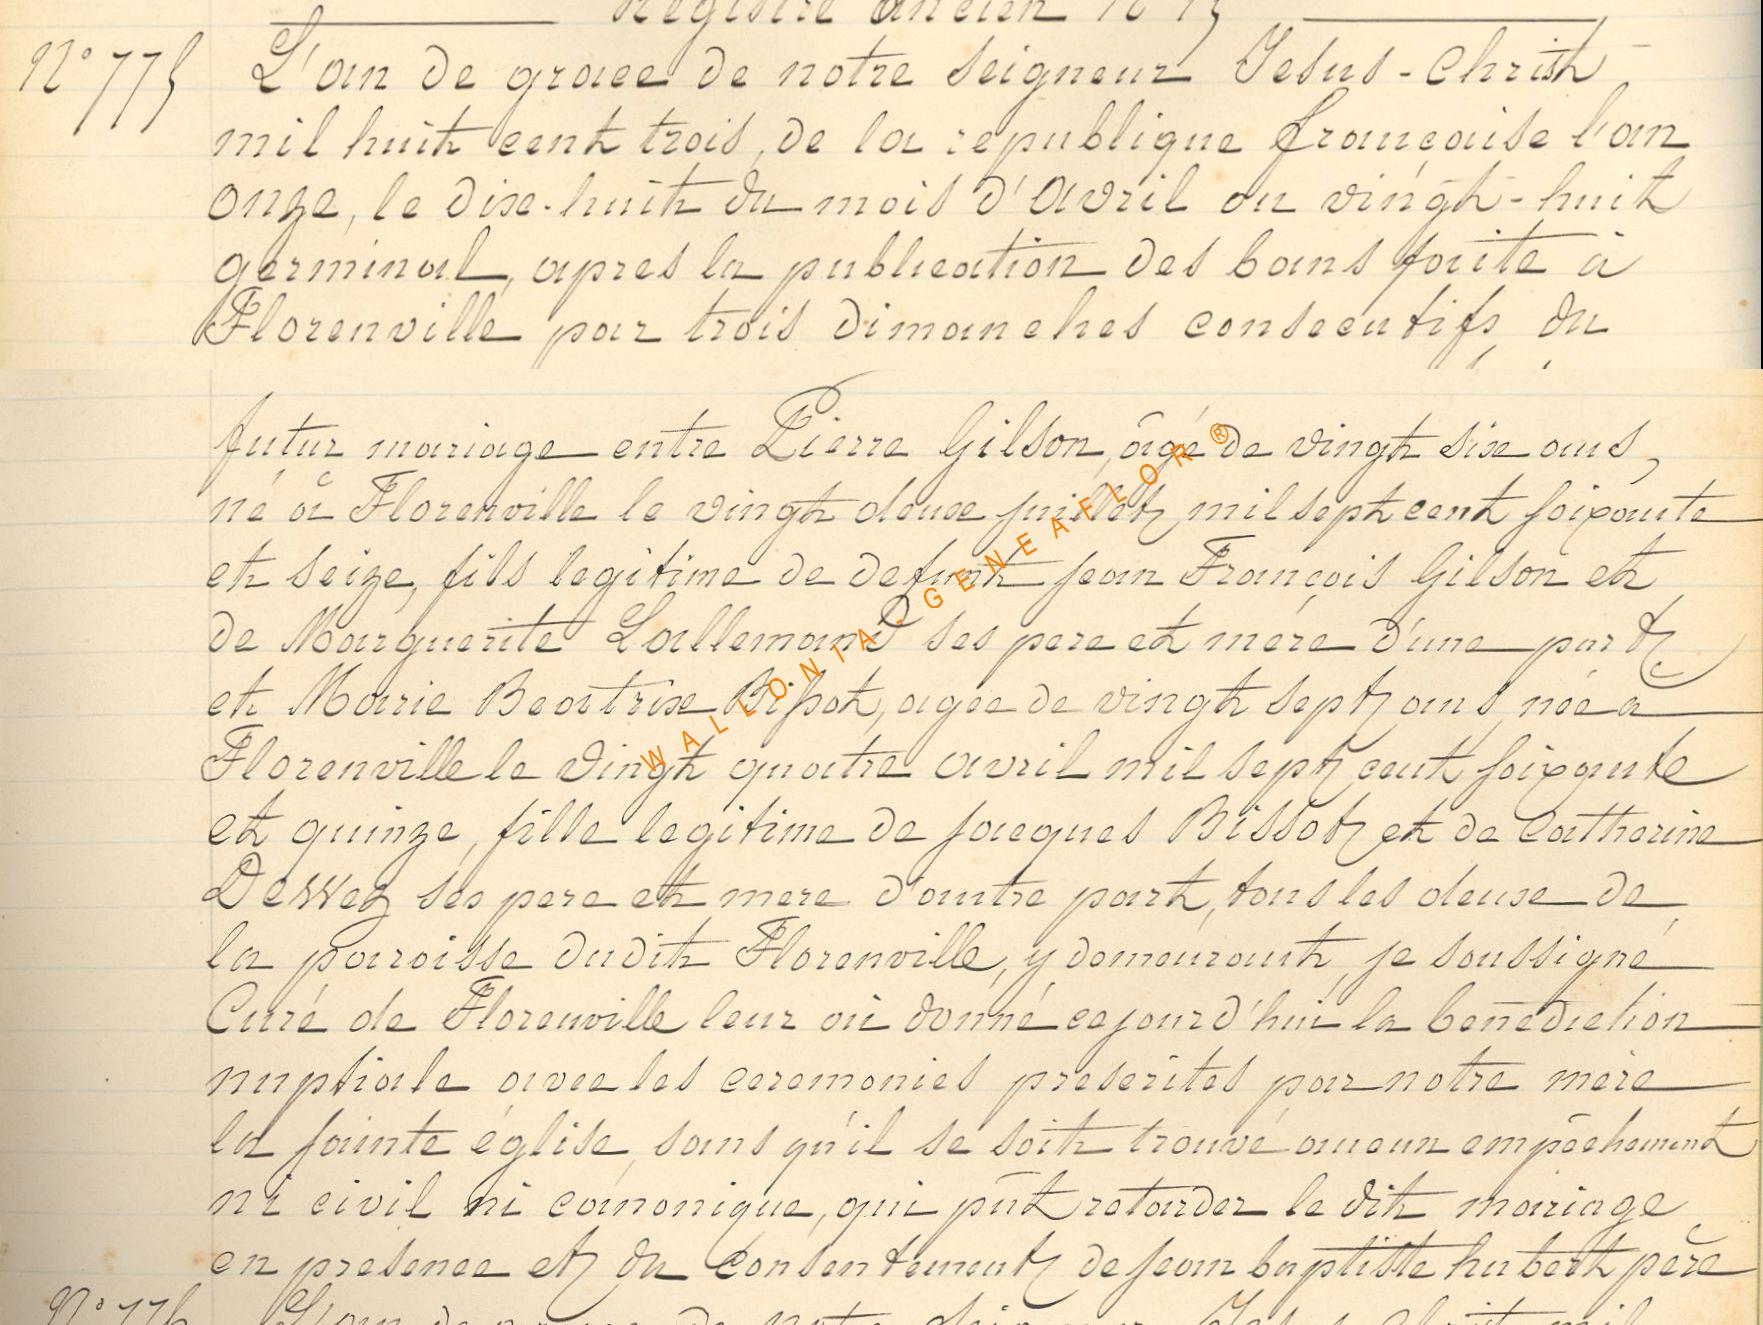 Registre ancien N° 15
N° 775 L'an de grace de notre seigneur Jesus-Christ
mil huit cent trois, de la republique française l'an
onze, le dix-huit du mois d'Avril ou vingt-huit
germinal, apres la publication des bans faite à
Florenville par trois dimanches consecutifs du
futur mariage entre Pierre Gilson, âgé de vingt six ans,
né à Florenville le vingt deux juillet mil sept cent soixante
et seize, fils legitime de defunt jean François Gilson et
de Marguerite Lallemand ses pere et mére d'une part
et Marie Beatrix Bissot, agée de vingt sept ans née a
Florenville le vingt quatre avril mil sept cent soixante
et quinze, fille legitime de jacques Bissot et de Catherine
Dewez ses pere et mere d'autre part, tous les deux de
la paroisse dudit Florenville, y demeurant, je soussigné
Curé de Florenville leur ai donné cejourd'hui la benediction
nuptiale avec les ceremonies prescrites par notre mère
la sainte église, sans qu'il se soit trouvé aucun empêchement
ni civil ni canonique, qui pût retarder le dit mariage
en presence et du consentement de jean baptiste hubert père
N° 776 L'an de grace de notre seigneur Jesus-Christ mil
WALLONIA - GENEAFLOR ®